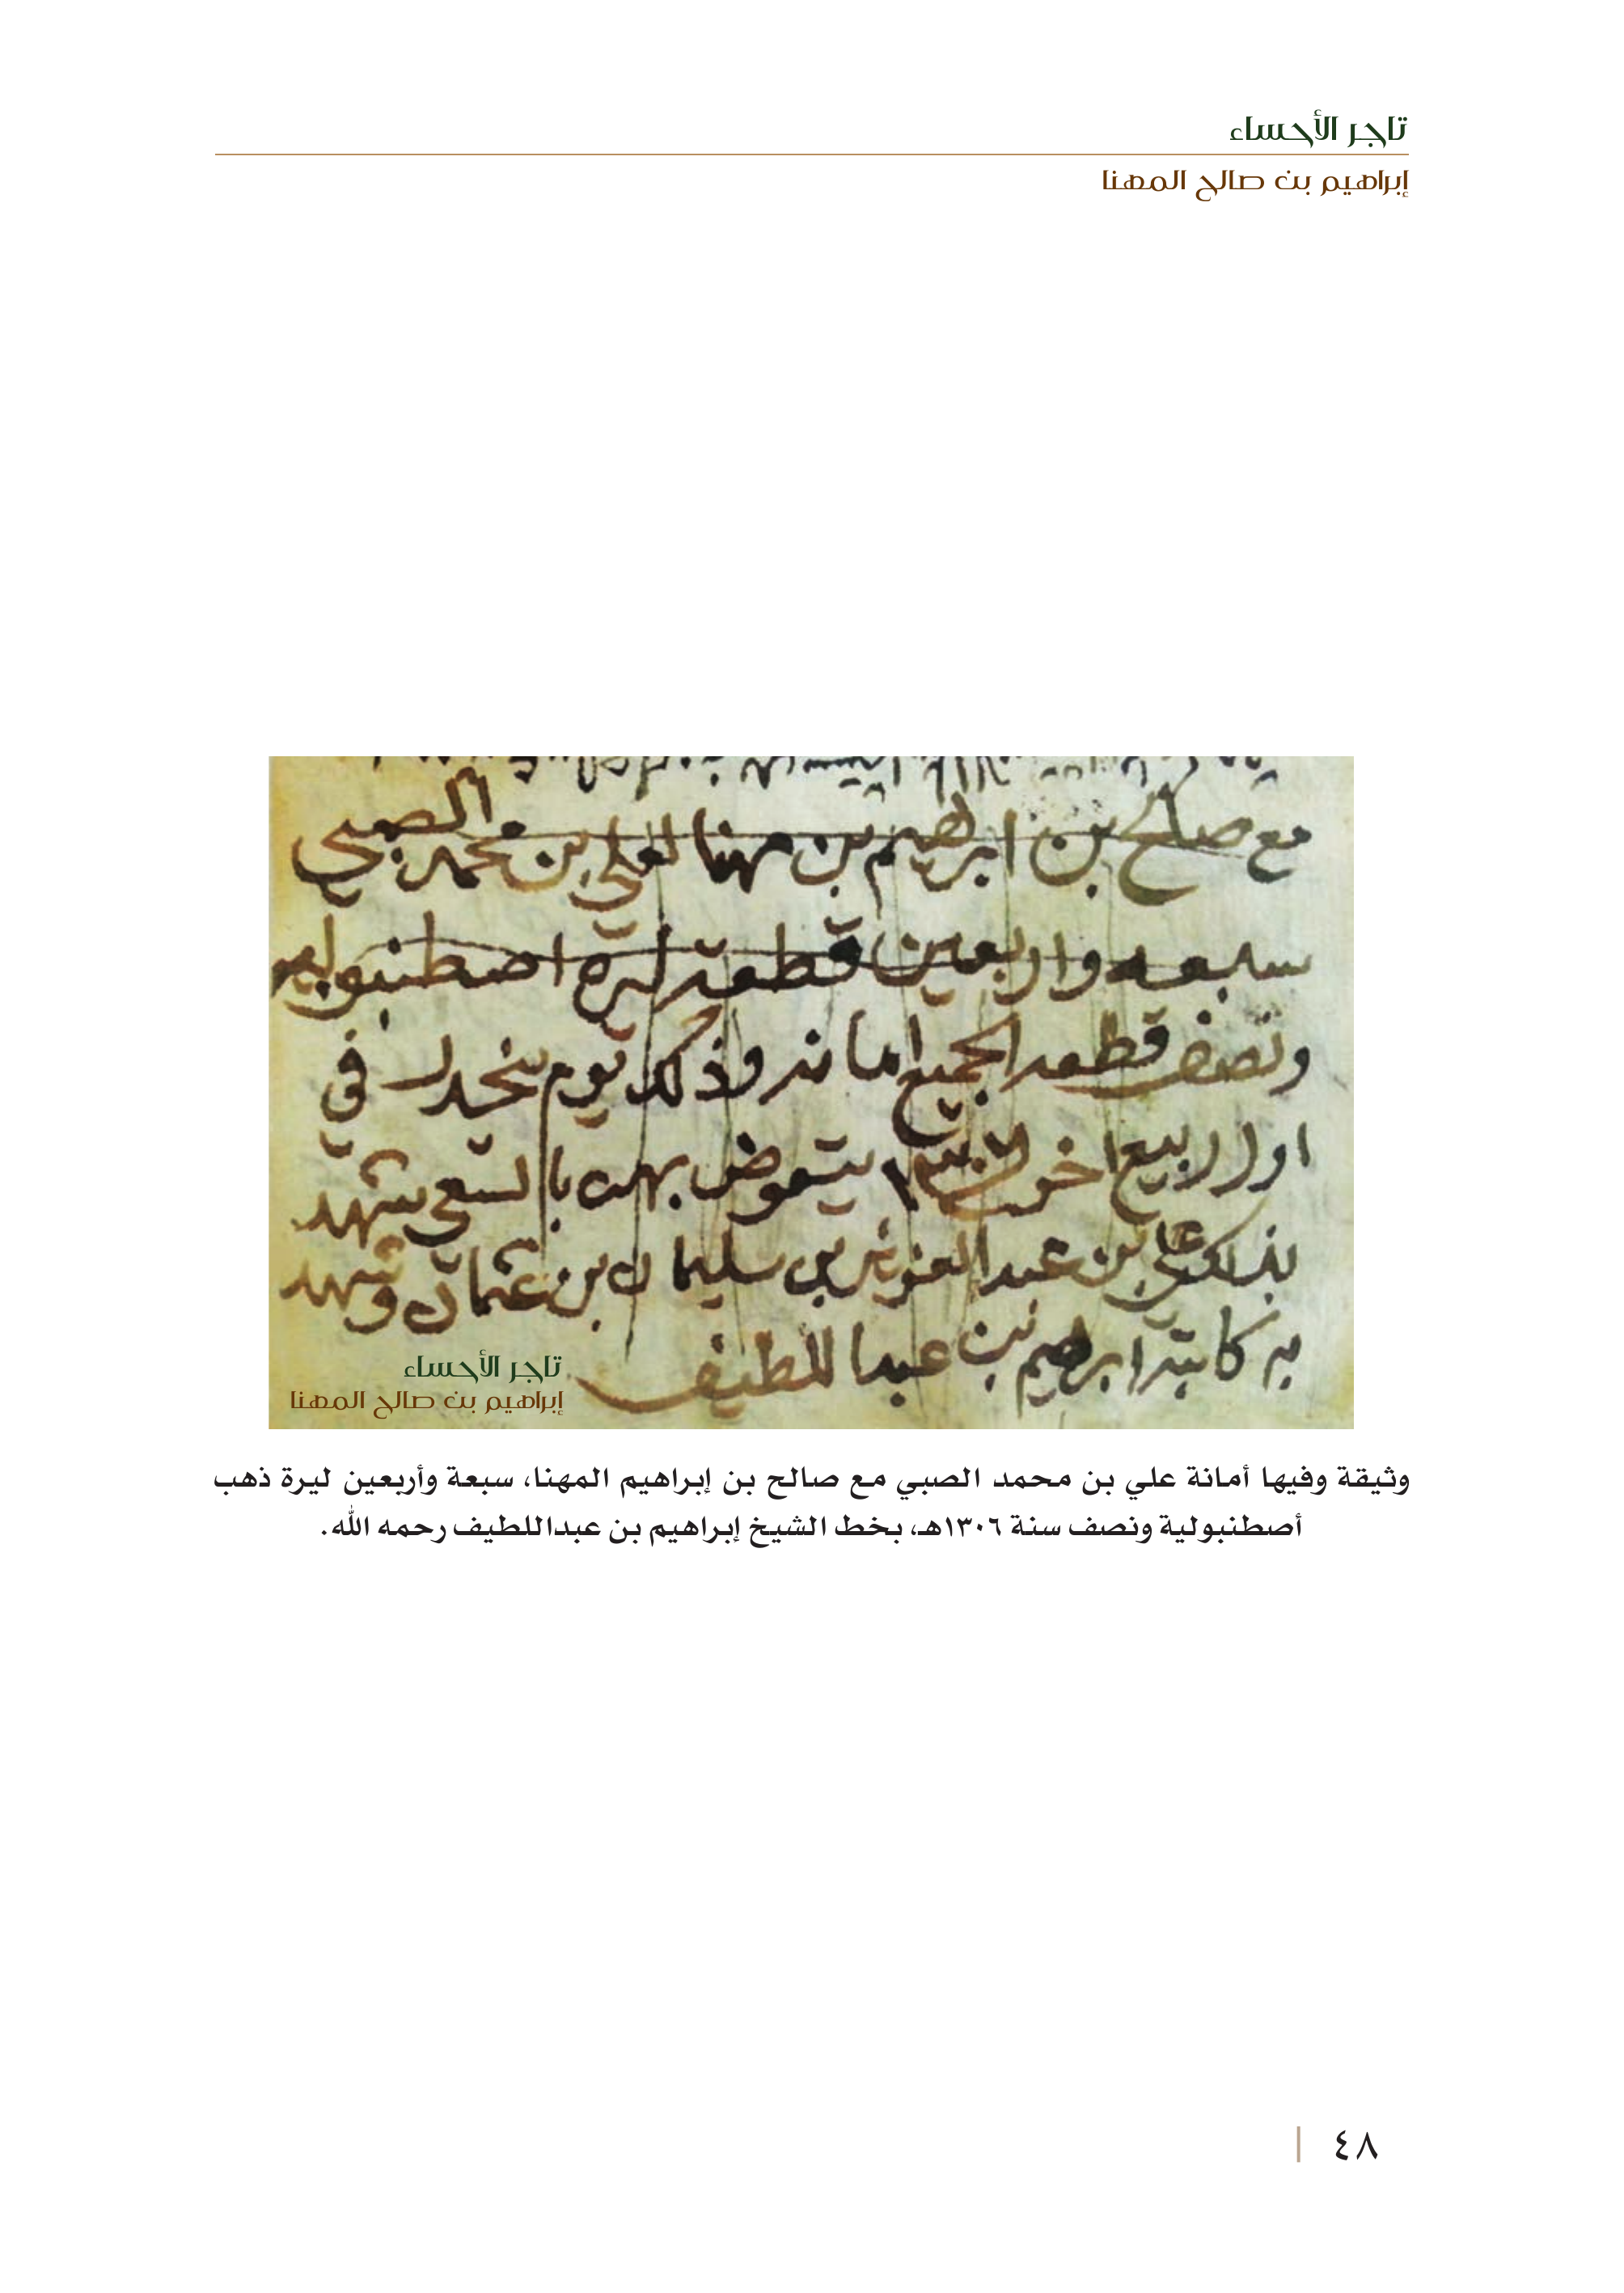 تاجر الأحساء
إبراهيم بن صالح المهنا
مع صالح بن ابراهيم بن مهنا لعلي بن محمد الصبي
سبعه واربعين قطعه ليرة اصطنبوليه
ونصف قطعه الجميع امانه وذلك يوم ينحدر في
اول ربيع اخر ١٣٠٦ يتعوض بهن بالسعي شهد
بذلك علي بن عبدالعزيز بن سليمان بن عثمان وشهد
به كاتبه ابراهيم بن عبداللطيف
تاجر الأحساء
إبراهيم بن صالح المهنا
وثيقة وفيها أمانة علي بن محمد الصبي مع صالح بن إبراهيم المهنا، سبعة وأربعين ليرة ذهب
أصطنبولية ونصف سنة ١٣٠٦هـ، بخط الشيخ إبراهيم بن عبداللطيف رحمه الله.
٤٨